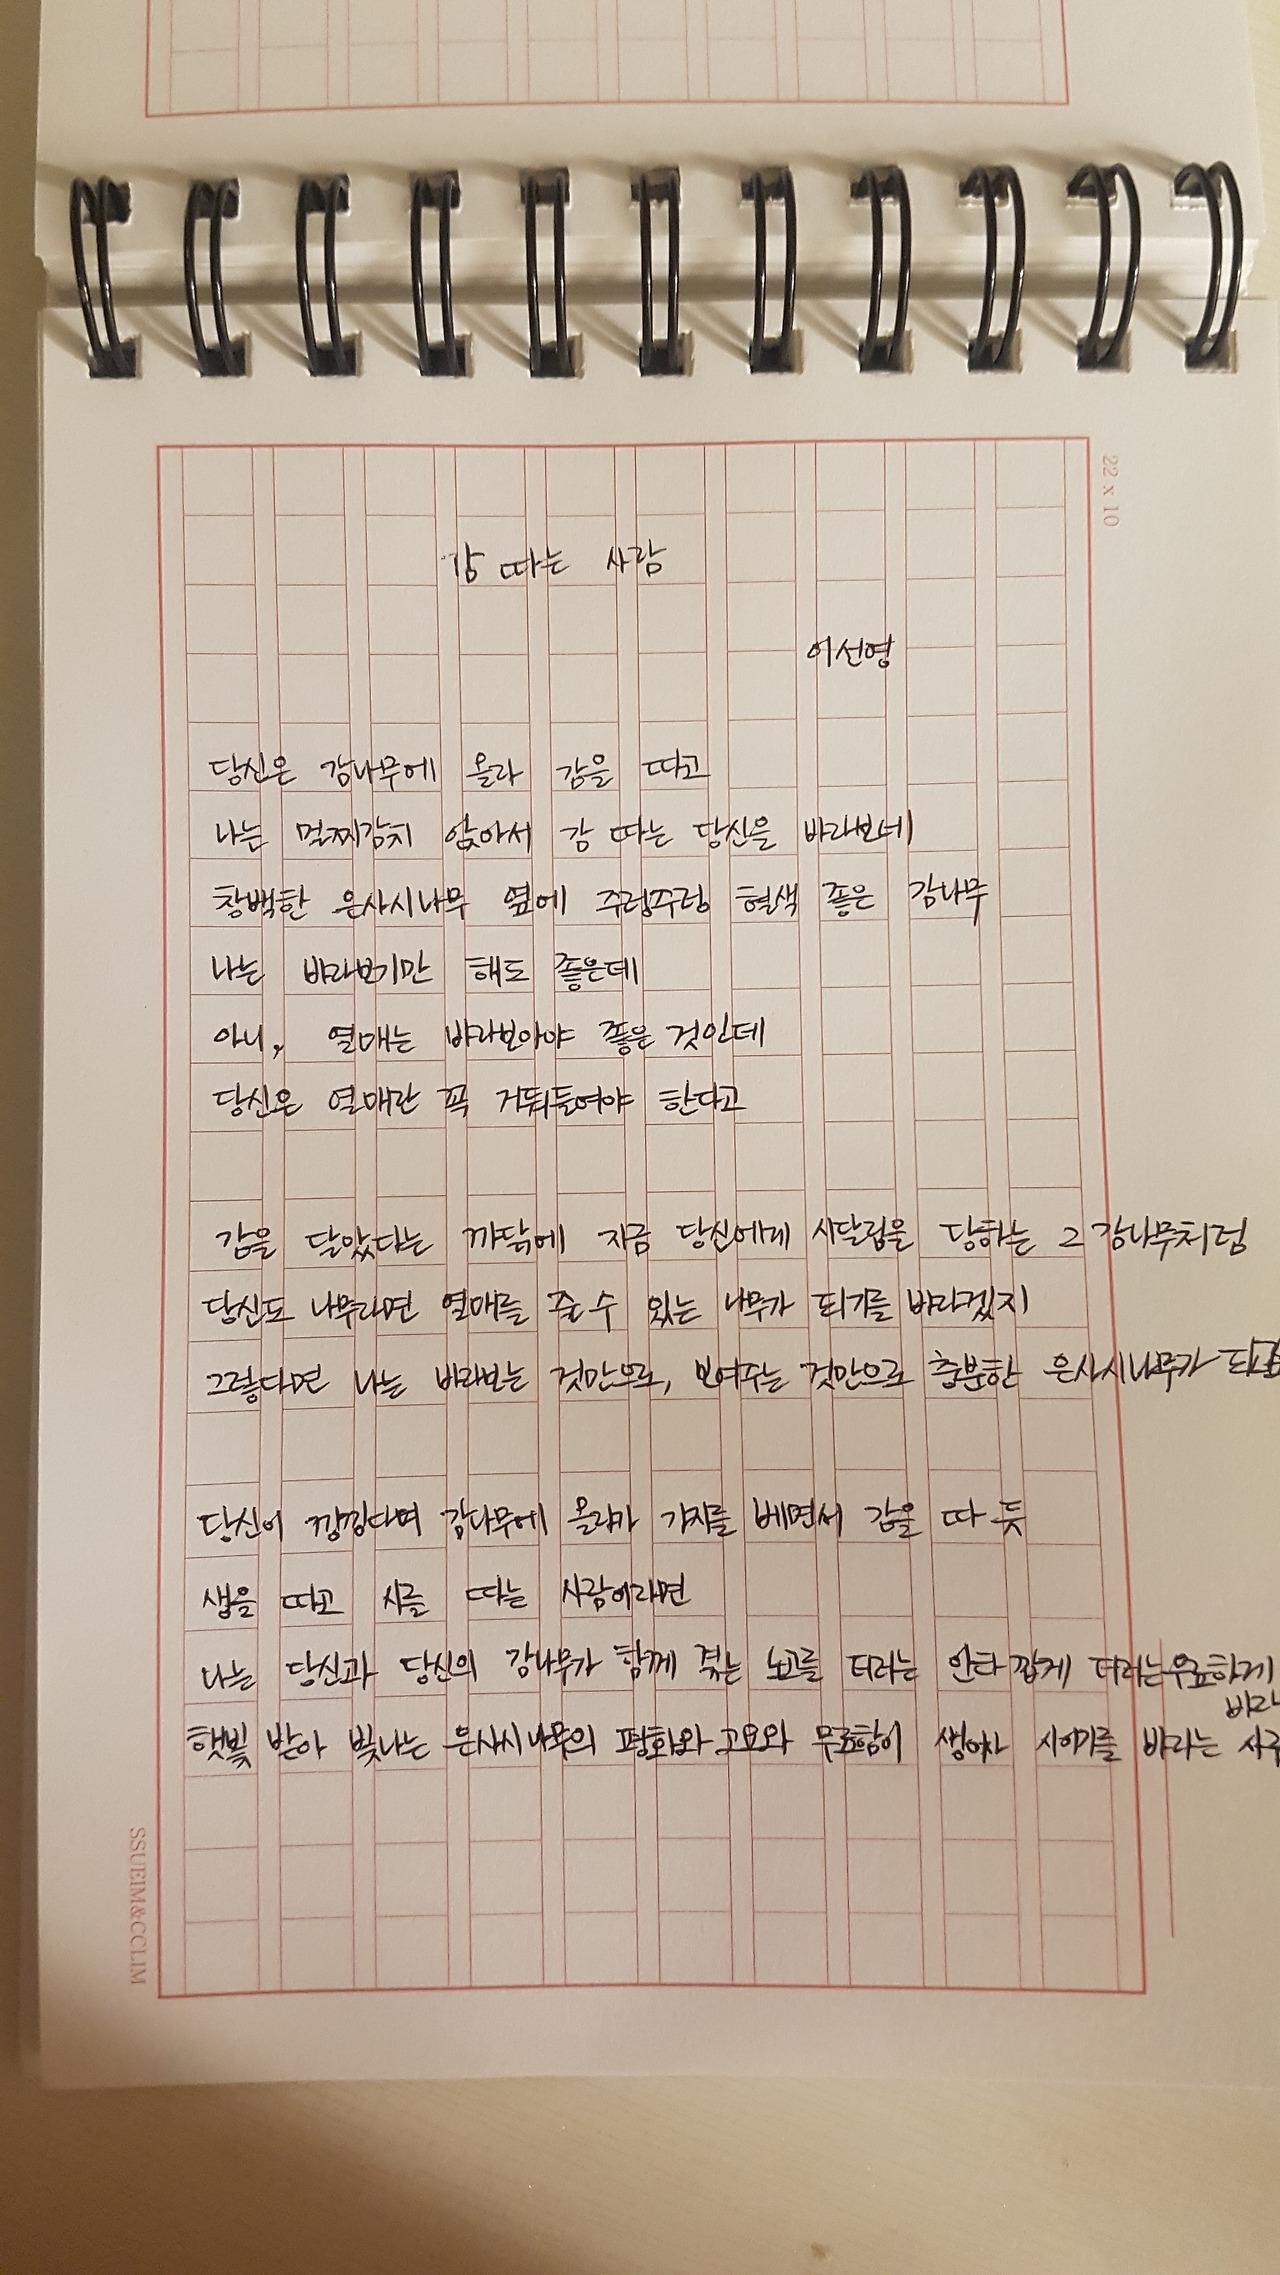 22 x 10
감 따는 사람
이선영
당신은 감나무에 올라 감을 따고
나는 멀찌감치 앉아서 감 따는 당신을 바라보네
창백한 은사시나무 옆에 주렁주렁 혈색 좋은 감나무
나는 바라보기만 해도 좋은데
아니, 열매는 바라보아야 좋을 것인데
당신은 열매란 꼭 거둬들여야 한다고
감을 달았다는 까닭에 지금 당신에게 시달림을 당하는 그 감나무처럼
당신도 나무라면 열매를 줄 수 있는 나무가 되기를 바라겠지
그렇다면 나는 바라보는 것만으로, 보여주는 것만으로 충분한 은사시나무가 되고
당신이 낑낑대며 감나무에 올라가 가지를 베면서 감을 따 듯
샘을 따고 시를 따는 사람이라면
나는 당신과 당신의 감나무가 함께 겪는 노고를 더러는 안타깝게 더러는 무료하게
바라
햇빛 받아 빛나는 은사시나무의 평화와 고요와 무료함이 생이자 시이기를 바라는
SSUEIM&CCLIM